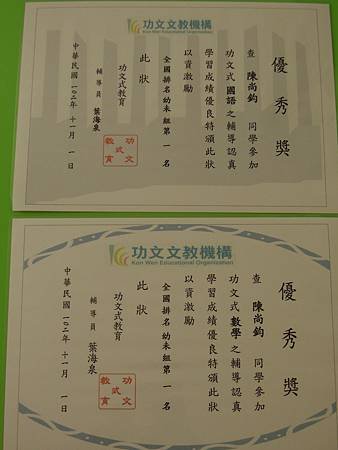 功文文教機構
Kon Wen Educational Organization
優秀獎
查 陳尚鈞 同學參加
功文式國語之輔導認真
學習成績優良特頒此狀
以資激勵
全國排名幼未組第一名
此狀
功文式教育
輔導員 葉海泉
功文式教育
中華民國一〇二年十一月一日
功文文教機構
Kon Wen Educational Organization
優秀獎
查 陳尚鈞 同學參加
功文式數學之輔導認真
學習成績優良特頒此狀
以資激勵
全國排名幼未組第一名
此狀
功文式教育
輔導員 葉海泉
功文式教育
中華民國一〇二年十一月一日